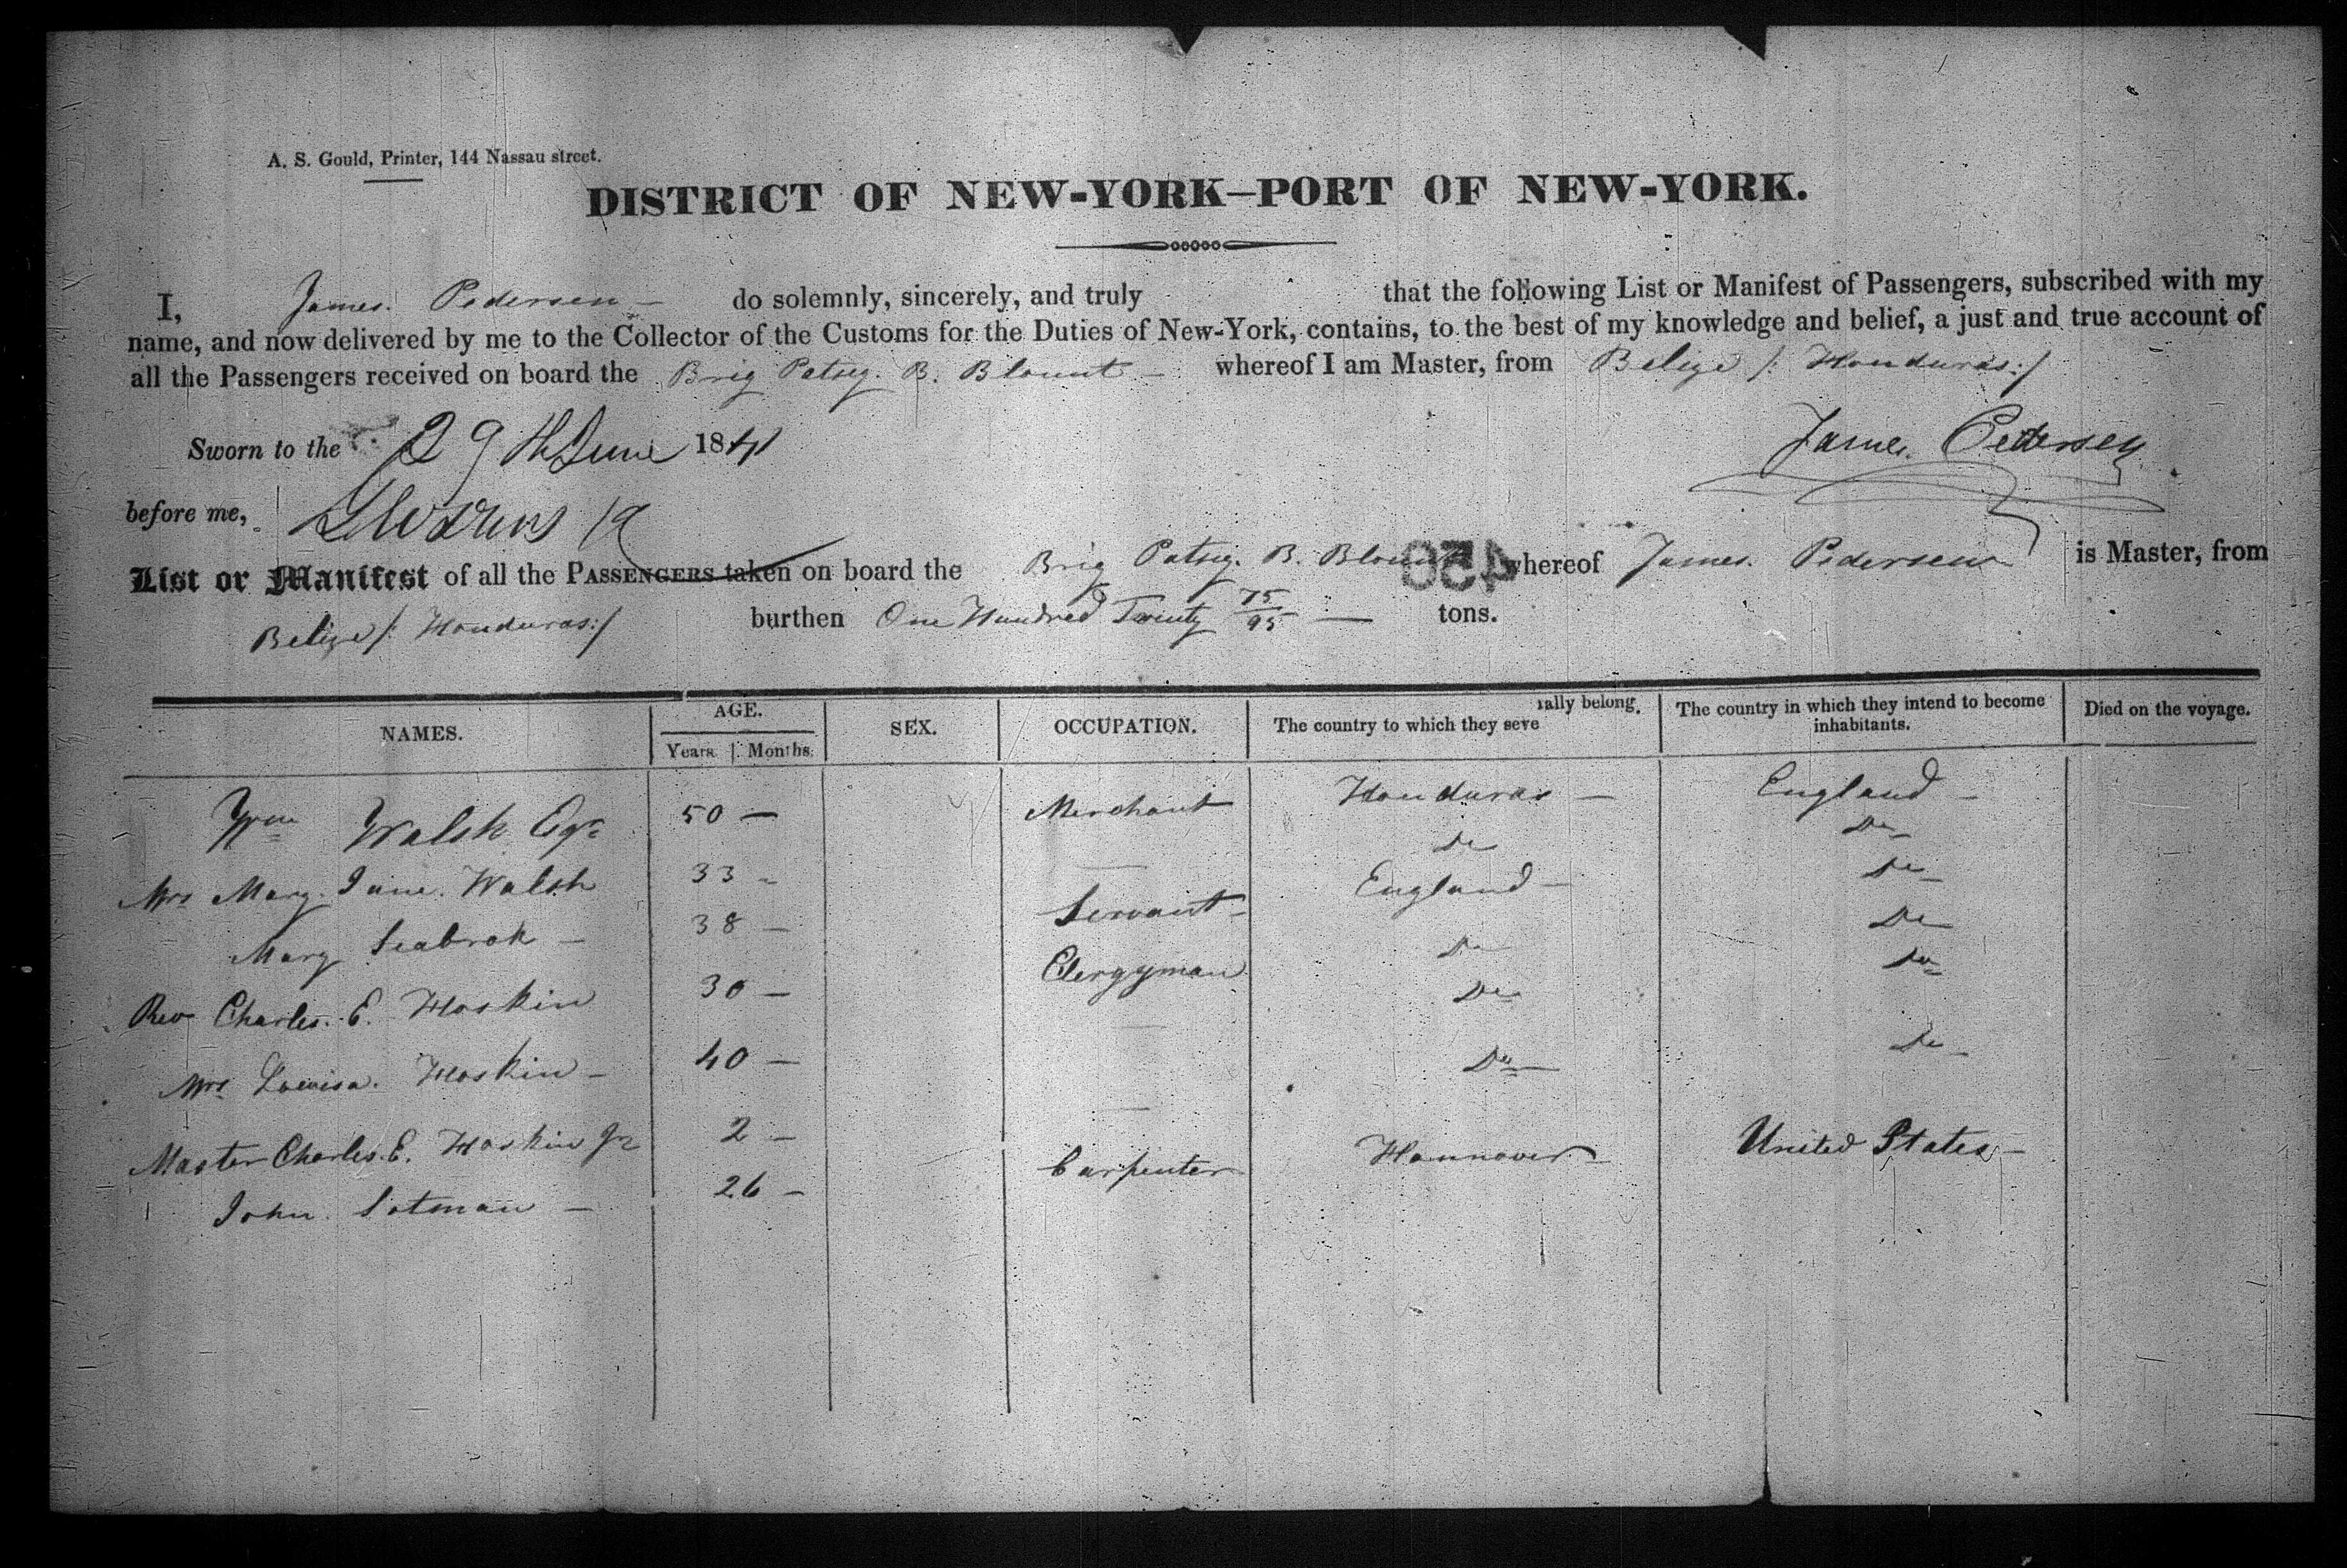 A. S. Gould, Printer, 144 Nassau street.
DISTRICT OF NEW-YORK—PORT OF NEW-YORK.
I, James. Pedersen — do solemnly, sincerely, and truly that the following List or Manifest of Passengers, subscribed with my
name, and now delivered by me to the Collector of the Customs for the Duties of New-York, contains, to the best of my knowledge and belief, a just and true account of
all the Passengers received on board the Brig Patsey. B. Blount — whereof I am Master, from Belize /: Honduras :/
Sworn to the 29th June 1841
James. Pedersen
before me,
List or Manifest of all the PASSENGERS taken on board the Brig Patsey. B. Blount whereof James. Pedersen is Master, from
Belize /: Honduras :/ burthen One Hundred Twenty 75/95 — tons.
NAMES. AGE. SEX. OCCUPATION. The country to which they severally belong. The country in which they intend to become inhabitants. Died on the voyage.
Years. Months.
Wm Walsh Esqr 50 — Merchant Honduras — England —
Mrs Mary Jane. Walsh 33 — Do Do
Mary Seabrok — 38 — Servant England — Do
Rev Charles. E. Hoskin 30 — Clergyman Do Do
Mrs Louisa. Hoskin — 40 — Do Do
Master Charles. E. Hoskin Jr 2 — Do Do
John. Sotman — 26 — Carpenter Hannover — United States —